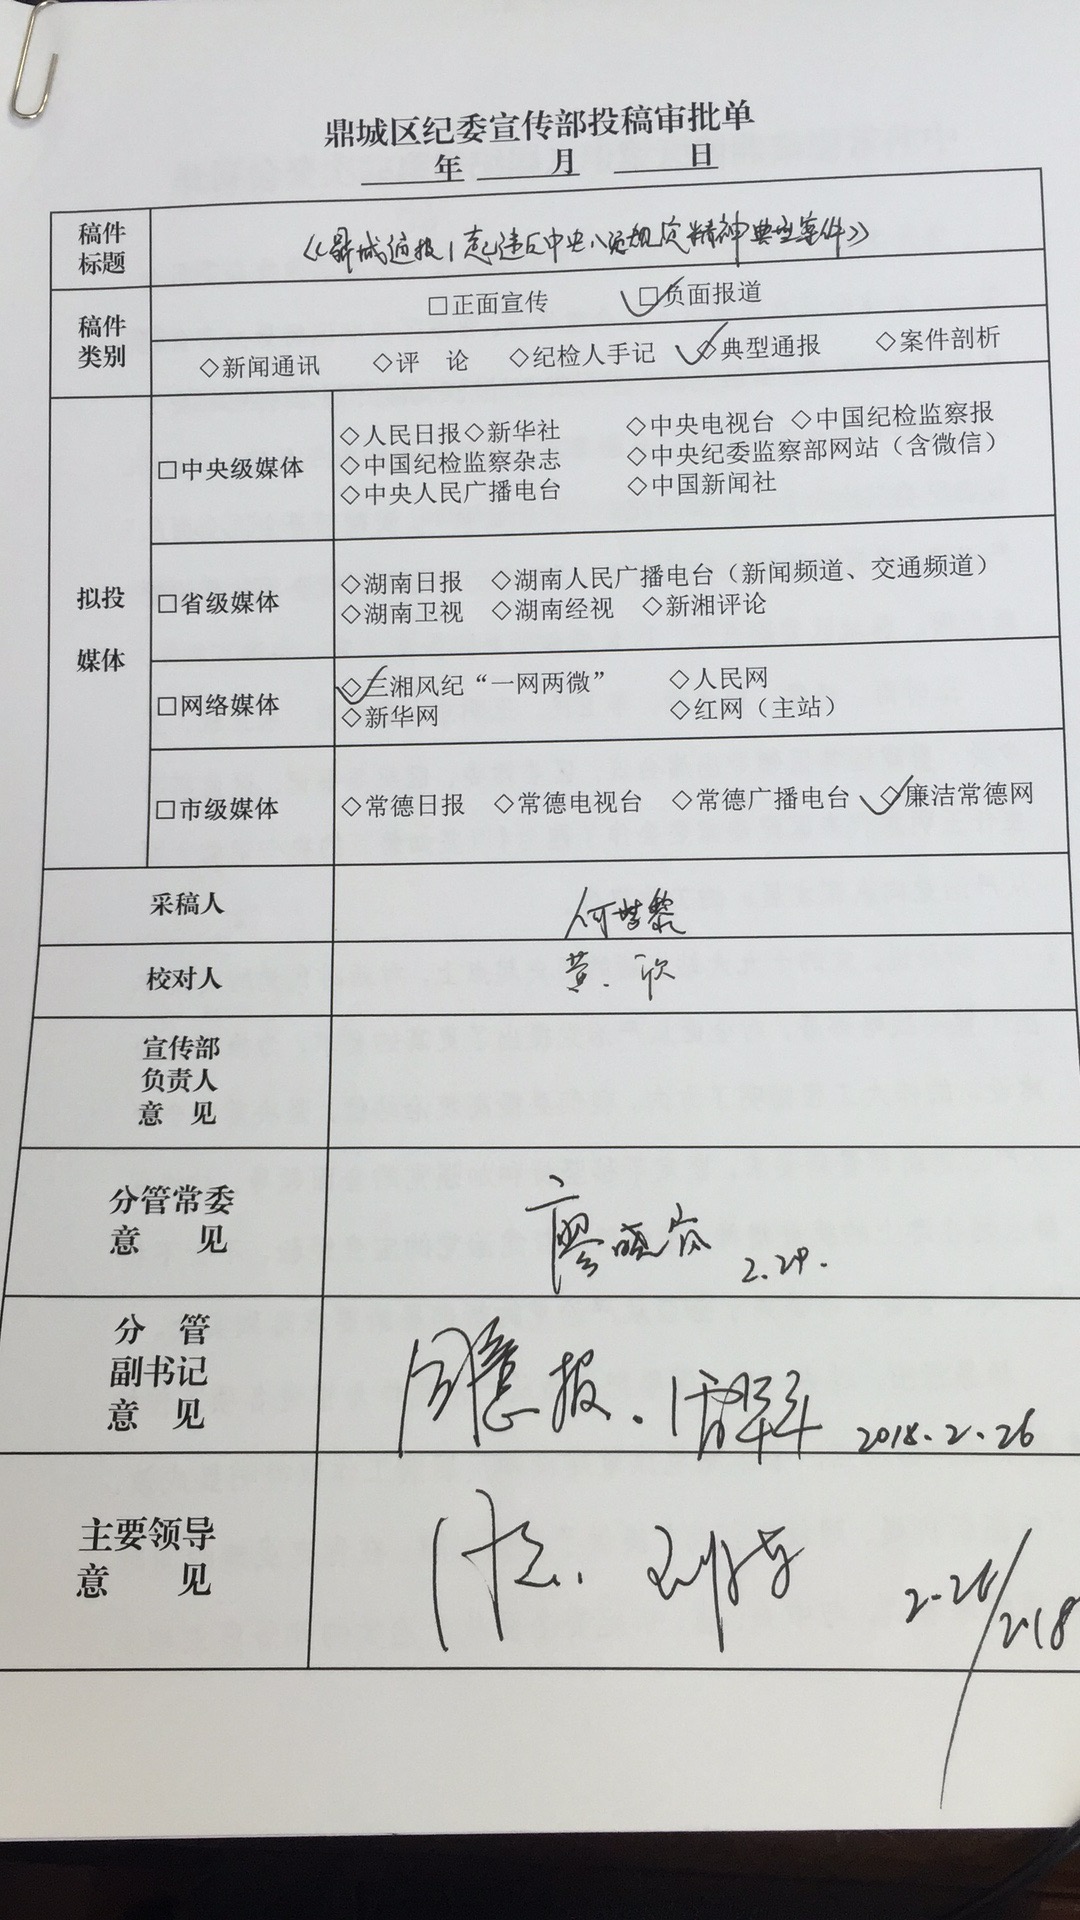 鼎城区纪委宣传部投稿审批单
年 月 日
稿件
标题
《鼎城通报1起违反中央八项规定精神典型案件》
稿件
类别
□正面宣传 □负面报道
◇新闻通讯 ◇评 论 ◇纪检人手记 ◇典型通报 ◇案件剖析
拟投
媒体
□中央级媒体
◇人民日报◇新华社 ◇中央电视台 ◇中国纪检监察报
◇中国纪检监察杂志 ◇中央纪委监察部网站（含微信）
◇中央人民广播电台 ◇中国新闻社
□省级媒体
◇湖南日报 ◇湖南人民广播电台（新闻频道、交通频道）
◇湖南卫视 ◇湖南经视 ◇新湘评论
□网络媒体
◇三湘风纪“一网两微” ◇人民网
◇新华网 ◇红网（主站）
□市级媒体
◇常德日报 ◇常德电视台 ◇常德广播电台 ◇廉洁常德网
采稿人
何 黎
校对人
黄 欣
宣传部
负责人
意 见
分管常委
意 见
廖晓
分 管
副书记
意 见
同意报. 2018.2.26
主要领导
意 见
同意. 2.26/2018